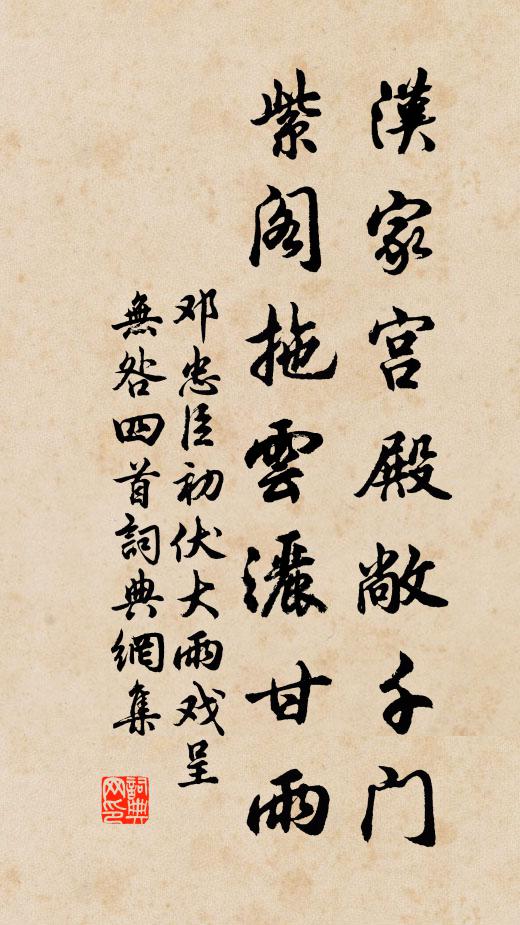 漢家宫殿敞千门
紫阁拖雲灑甘雨
邓忠臣初伏大雨戏呈
無咎四首詞典網集
詞典
网印